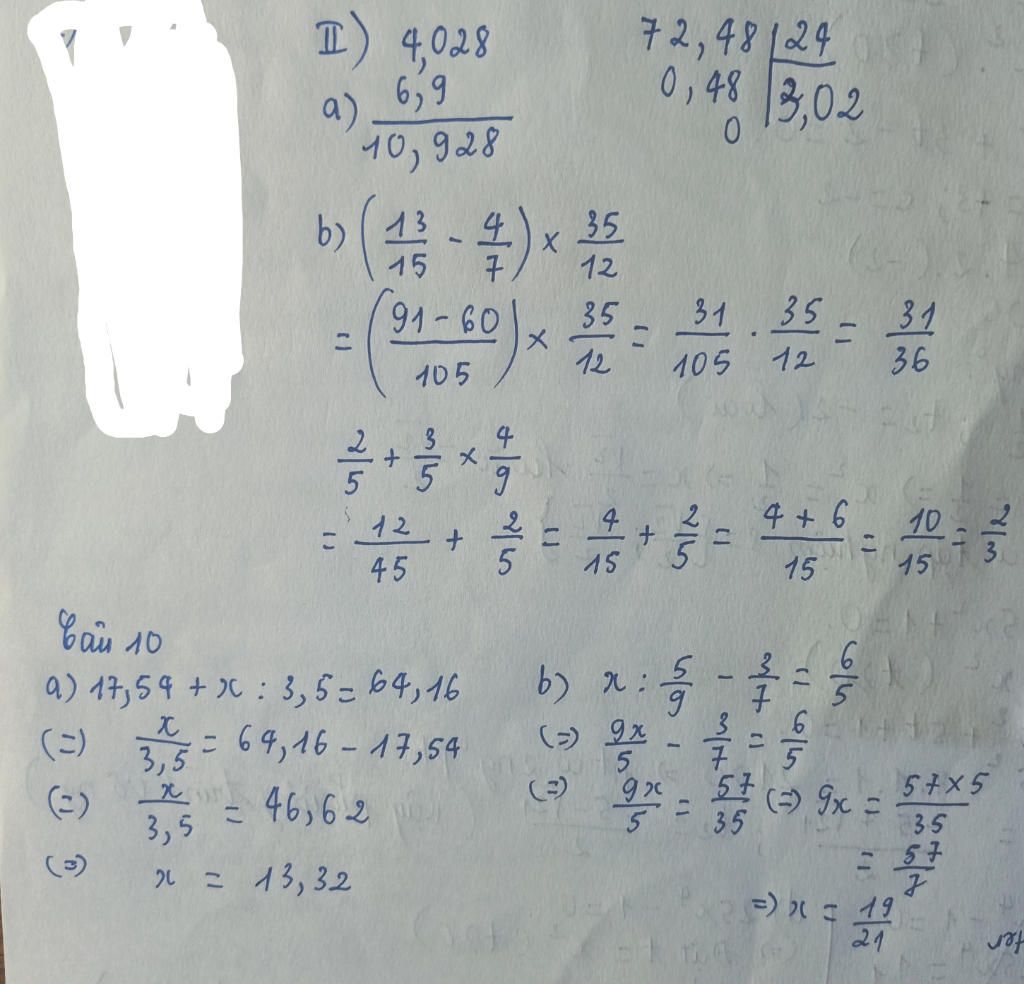 II) 4,028
a) 6,9
10,928
72,48 | 24
0,48 | 3,02
0
b) (13/15 - 4/7) × 35/12
= ((91 - 60)/105) × 35/12 = 31/105 . 35/12 = 31/36
2/5 + 3/5 × 4/9
= 12/45 + 2/5 = 4/15 + 2/5 = (4 + 6)/15 = 10/15 = 2/3
Bài 10
a) 17,54 + x : 3,5 = 64,16
(=) x/3,5 = 64,16 - 17,54
(=) x/3,5 = 46,62
(=) x = 13,32
b) x : 5/9 - 3/7 = 6/5
(=) 9x/5 - 3/7 = 6/5
(=) 9x/5 = 57/35 (=) 9x = (57×5)/35
= 57/7
=) x = 19/21